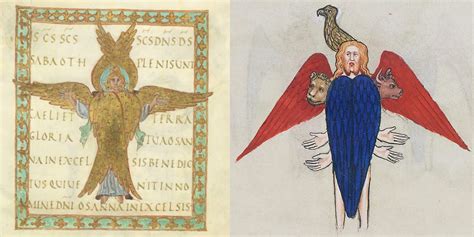 SCS SCS SCS DNS DS
SABAOTH PLENISUNT
CAELIET TERRA
GLORIA TUAOSAN
NAINEXCEL SISBENEDIC
TUSQUIVE NITINNO
MINEDNIOSANNAINEXCELSIS